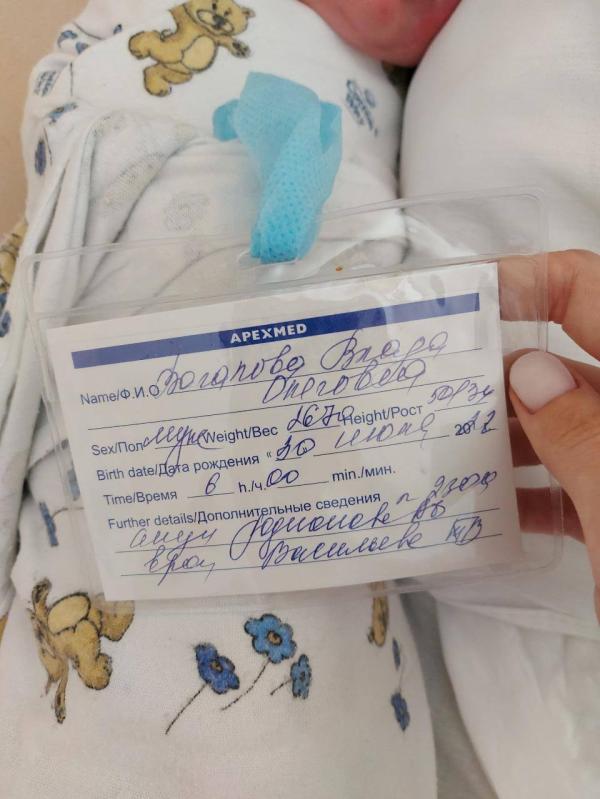 APEXMED
Name/Ф.И.О. Вагапова Влада
Олеговна
Sex/Пол муж Weight/Вес 2670 Height/Рост
Birth date/Дата рождения "30" июня 2022
Time/Время 6 h./ч. 00 min./мин.
Further details/Дополнительные сведения
Родионова АВ
врач Васильева